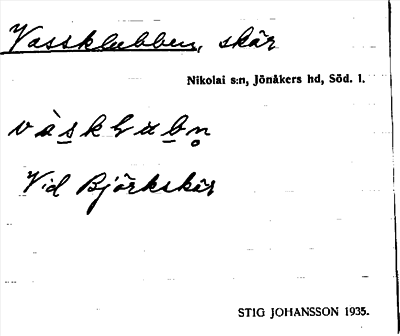 Vassklubben, skär
Nikolai s:n, Jönåkers hd, Söd. l.
vàsklubn̥
Vid Björkskär
STIG JOHANSSON 1935.